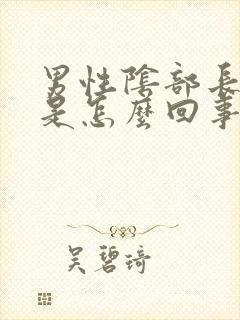 男性陰部長
是怎麼回事
吳碧琦